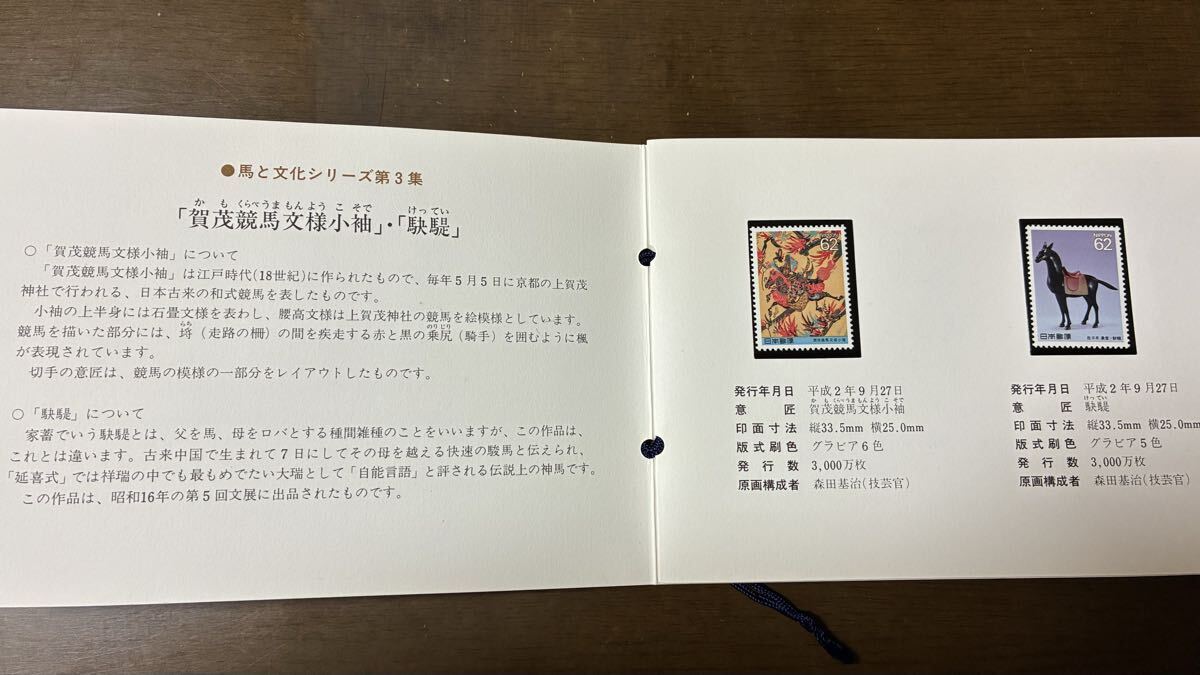 ●馬と文化シリーズ第3集
かもくらべうまもんようこそで けってい
「賀茂競馬文様小袖」・「駃騠」
○「賀茂競馬文様小袖」について
「賀茂競馬文様小袖」は江戸時代(18世紀)に作られたもので、毎年5月5日に京都の上賀茂
神社で行われる、日本古来の和式競馬を表したものです。
小袖の上半身には石畳文様を表わし、腰高文様は上賀茂神社の競馬を絵模様としています。
らち のりじり
競馬を描いた部分には、埒(走路の柵)の間を疾走する赤と黒の乗尻(騎手)を囲むように楓
が表現されています。
切手の意匠は、競馬の模様の一部分をレイアウトしたものです。
○「駃騠」について
家蓄でいう駃騠とは、父を馬、母をロバとする種間雑種のことをいいますが、この作品は、
これとは違います。古来中国で生まれて7日にしてその母を越える快速の駿馬と伝えられ、
「延喜式」では祥瑞の中でも最もめでたい大瑞として「自能言語」と評される伝説上の神馬です。
この作品は、昭和16年の第5回文展に出品されたものです。
62
日本郵便
発行年月日 平成2年9月27日
かもくらべうまもんようこそで
意匠 賀茂競馬文様小袖
印面寸法 縦33.5mm 横25.0mm
版式刷色 グラビア6色
発行数 3,000万枚
原画構成者 森田基治(技芸官)
NIPPON
62
日本郵便
発行年月日 平成2年9月27日
けってい
意匠 駃騠
印面寸法 縦33.5mm 横25.0mm
版式刷色 グラビア5色
発行数 3,000万枚
原画構成者 森田基治(技芸官)